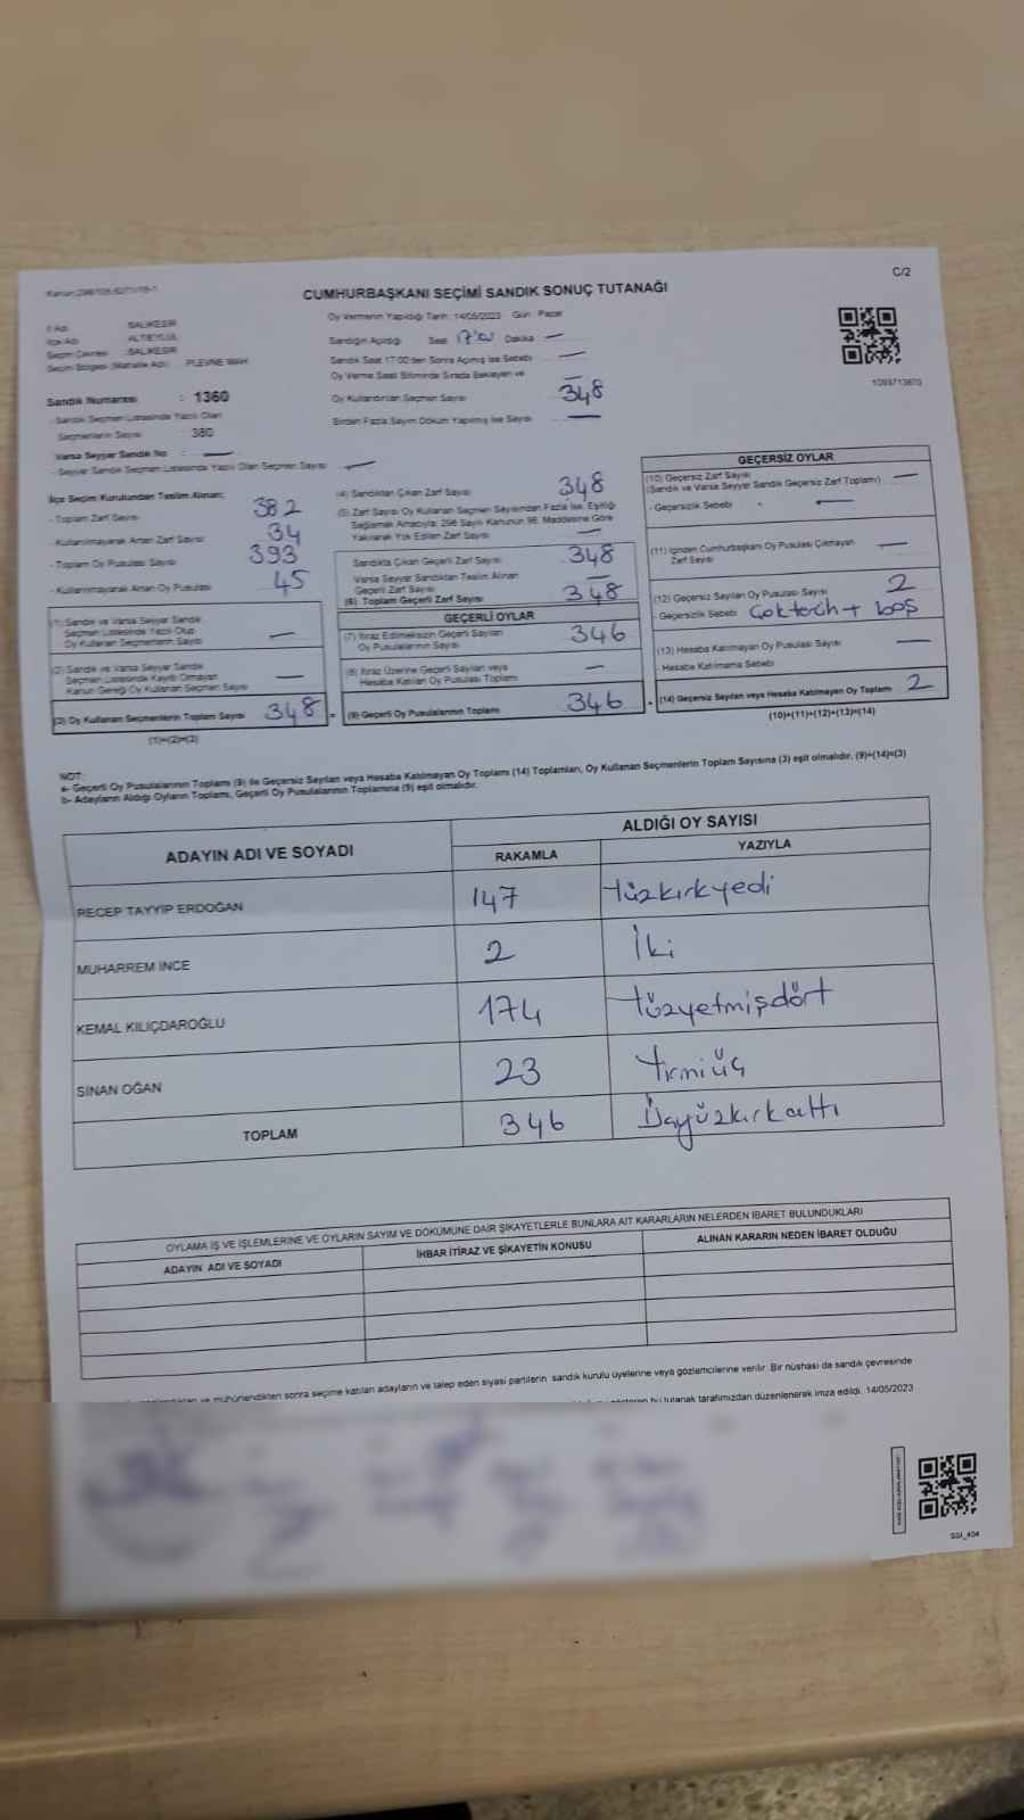 C/2
CUMHURBAŞKANI SEÇİMİ SANDIK SONUÇ TUTANAĞI
İl Adı BALIKESİR
İlçe Adı ALTIEYLÜL
Seçim Çevresi BALIKESİR
Seçim Bölgesi (Mahalle Adı) PLEVNE MAH.
Sandık Numarası : 1360
Sandık Seçmen Listesinde Yazılı Olan
Seçmenlerin Sayısı 380
Varsa Seyyar Sandık No : —
Seyyar Sandık Seçmen Listesinde Yazılı Olan Seçmen Sayısı —
Oy Vermenin Yapıldığı Tarih: 14/05/2023 Gün: Pazar
Sandığın Açıldığı Saat 17:00 Dakika —
Sandık Saat 17:00'den Sonra Açılmış İse Sebebi —
Oy Verme Saati Bitiminde Sırada Bekleyen ve —
Oy Kullandırılan Seçmen Sayısı 348
Birden Fazla Sayım Döküm Yapılmış İse Sayısı —
İlçe Seçim Kurulundan Teslim Alınan;
- Toplam Zarf Sayısı 382
- Kullanılmayarak Artan Zarf Sayısı 34
- Toplam Oy Pusulası Sayısı 393
- Kullanılmayarak Artan Oy Pusulası 45
(1) Sandık ve Varsa Seyyar Sandık
Seçmen Listesinde Yazılı Olup
Oy Kullanan Seçmenlerin Sayısı —
(2) Sandık ve Varsa Seyyar Sandık
Seçmen Listesinde Kayıtlı Olmayan
Kanun Gereği Oy Kullanan Seçmen Sayısı —
(3) Oy Kullanan Seçmenlerin Toplam Sayısı 348 =
(1)+(2)=(3)
(4) Sandıktan Çıkan Zarf Sayısı 348
(5) Zarf Sayısı Oy Kullanan Seçmen Sayısından Fazla İse, Eşitliği
Sağlamak Amacıyla; 298 Sayılı Kanunun 98. Maddesine Göre
Yakılarak Yok Edilen Zarf Sayısı —
Sandıkta Çıkan Geçerli Zarf Sayısı 348
Varsa Seyyar Sandıktan Teslim Alınan
Geçerli Zarf Sayısı —
(6) Toplam Geçerli Zarf Sayısı 348
GEÇERLİ OYLAR
(7) İtiraz Edilmeksizin Geçerli Sayılan
Oy Pusulalarının Sayısı 346
(8) İtiraz Üzerine Geçerli Sayılan veya
Hesaba Katılan Oy Pusulası Toplamı —
(9) Geçerli Oy Pusulalarının Toplamı 346 +
GEÇERSİZ OYLAR
(10) Geçersiz Zarf Sayısı
(Sandık ve Varsa Seyyar Sandık Geçersiz Zarf Toplamı) —
- Geçersizlik Sebebi —
(11) İçinden Cumhurbaşkanı Oy Pusulası Çıkmayan
Zarf Sayısı —
(12) Geçersiz Sayılan Oy Pusulası Sayısı 2
- Geçersizlik Sebebi Çok tercih + boş
(13) Hesaba Katılmayan Oy Pusulası Sayısı —
- Hesaba Katılmama Sebebi
(14) Geçersiz Sayılan veya Hesaba Katılmayan Oy Toplamı 2
(10)+(11)+(12)+(13)=(14)
NOT:
a- Geçerli Oy Pusulalarının Toplamı (9) ile Geçersiz Sayılan veya Hesaba Katılmayan Oy Toplamı (14) Toplamları, Oy Kullanan Seçmenlerin Toplam Sayısına (3) eşit olmalıdır. (9)+(14)=(3)
b- Adayların Aldığı Oyların Toplamı, Geçerli Oy Pusulalarının Toplamına (9) eşit olmalıdır.
ADAYIN ADI VE SOYADI ALDIĞI OY SAYISI
RAKAMLA YAZIYLA
RECEP TAYYİP ERDOĞAN 147 Yüzkırkyedi
MUHARREM İNCE 2 İki
KEMAL KILIÇDAROĞLU 174 Yüzyetmişdört
SİNAN OĞAN 23 Yirmiüç
TOPLAM 346 Üçyüzkırkaltı
OYLAMA İŞ VE İŞLEMLERİNE VE OYLARIN SAYIM VE DÖKÜMÜNE DAİR ŞİKAYETLERLE BUNLARA AİT KARARLARIN NELERDEN İBARET BULUNDUKLARI
ADAYIN ADI VE SOYADI İHBAR İTİRAZ VE ŞİKAYETİN KONUSU ALINAN KARARIN NEDEN İBARET OLDUĞU
ve mühürlendikten sonra seçime katılan adayların ve talep eden siyasi partilerin sandık kurulu üyelerine veya gözlemcilerine verilir. Bir nüshası da sandık çevresinde
bu tutanak tarafımızdan düzenlenerek imza edildi. 14/05/2023